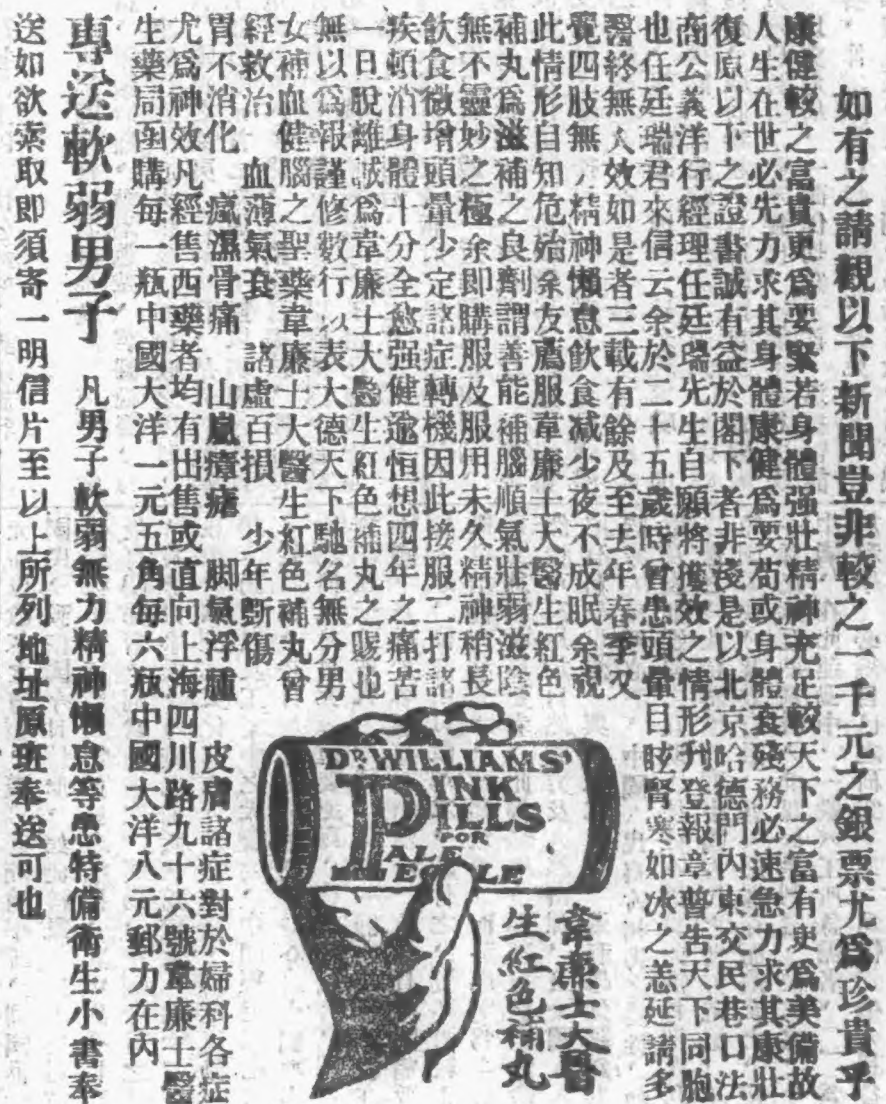 如有之請觀以下新聞豈非較之一千元之銀票尤爲珍貴乎
康健較之富貴更爲要緊若身體强壯精神充足較天下之富有更爲美備故
人生在世必先力求其身體康健爲要苟或身體衰殘務必速急力求其康壯
復原以下之證書誠有益於閣下者非淺是以北京哈德門內東交民巷口法
商公義洋行經理任廷瑞先生自願將獲效之情形刋登報章普告天下同胞
也任廷瑞君來信云余於二十五歲時曾患頭暈目眩腎寒如冰之恙延請多
醫終無人效如是者三載有餘及至去年春季又
覺四肢無 精神懶怠飲食减少夜不成眠余視
此情形自知危殆余友薦服韋廉士大醫生紅色
補丸爲滋補之良劑謂善能補腦順氣壯弱滋陰
無不靈妙之極余即購服及服用未久精神稍長
飲食微增頭暈少定諸症轉機因此接服二打諸
疾頓消身體十分全愈强健逾恒想四年之痛苦
一旦脫離誠爲韋廉士大醫生紅色補丸之賜也
無以爲報謹修數行以表大德天下馳名無分男
女補血健腦之聖藥韋廉士大醫生紅色補丸曾
經救治 血薄氣衰 諸虛百損 少年斲傷
胃不消化 瘋濕骨痛 山嵐瘴瘧 脚氣浮腫 皮膚諸症對於婦科各症
尤爲神效凡經售西藥者均有出售或直向上海四川路九十六號韋廉士醫
生藥局函購每一瓶中國大洋一元五角每六瓶中國大洋八元郵力在內
專送軟弱男子 凡男子軟弱無力精神懶怠等患特備衛生小書奉
送如欲索取即須寄一明信片至以上所列地址原班奉送可也
DR WILLIAMS'
PINK
PILLS
FOR
PALE
PEOPLE
韋廉士大醫
生紅色補丸